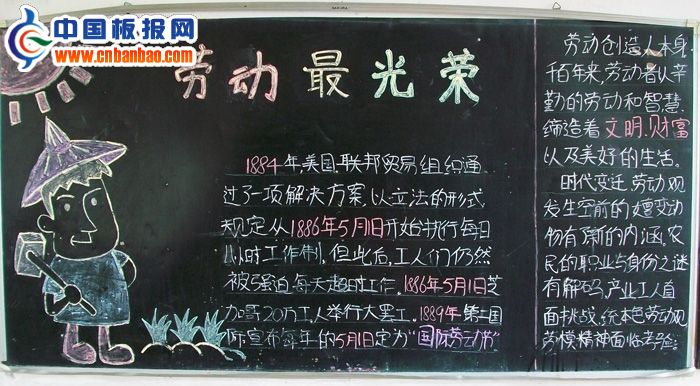 中国板报网
www.cnbanbao.com
劳动最光荣
1884年,美国联邦贸易组织通
过了一项解决方案以立法的形式,
规定从1886年5月1日开始执行每日
八小时工作制,但此后,工人们仍然
被强迫每天超时工作.1886年5月1日芝
加哥20万工人举行大罢工.1889年第二国
际宣布每年的5月1日定为“国际劳动节”
劳动创造人本身
千百年来,劳动者以辛
勤的劳动和智慧,
缔造着文明、财富
以及美好的生活。
时代变迁,劳动观
发生空前的嬗变,劳动
物有了新的内涵,农
民的职业与身份之谜
有解码,产业工人首
面挑战,统本色劳动观
劳模精神面临考验: